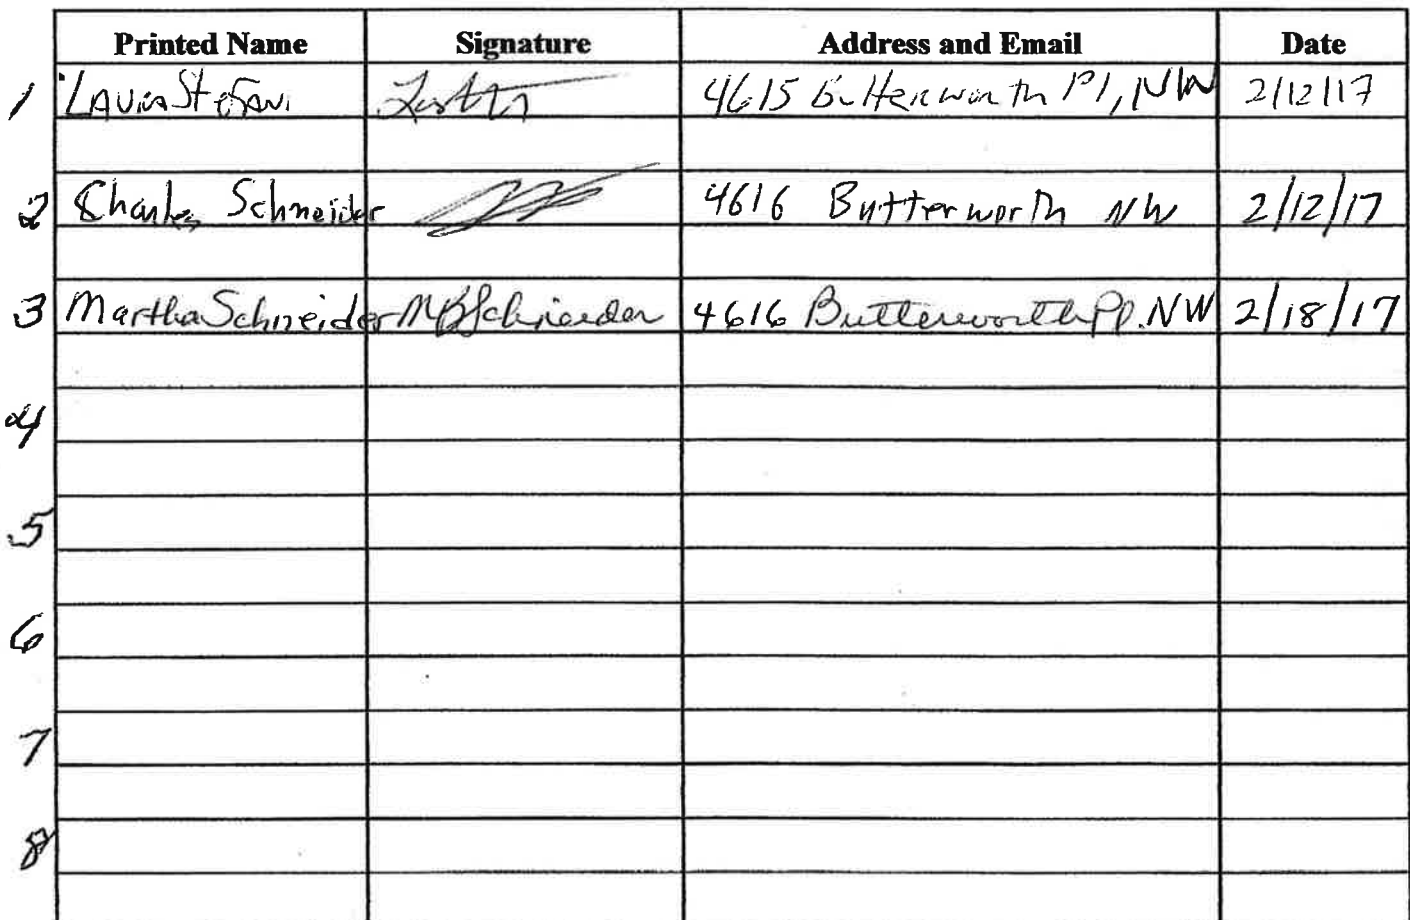 Printed Name Signature Address and Email Date
1 Laura Stefani 4615 Butterworth Pl, NW 2/12/17
2 Charles Schneider 4616 Butterworth NW 2/12/17
3 Martha Schneider MBSchneider 4616 Butterworth Pl. NW 2/18/17
4
5
6
7
8